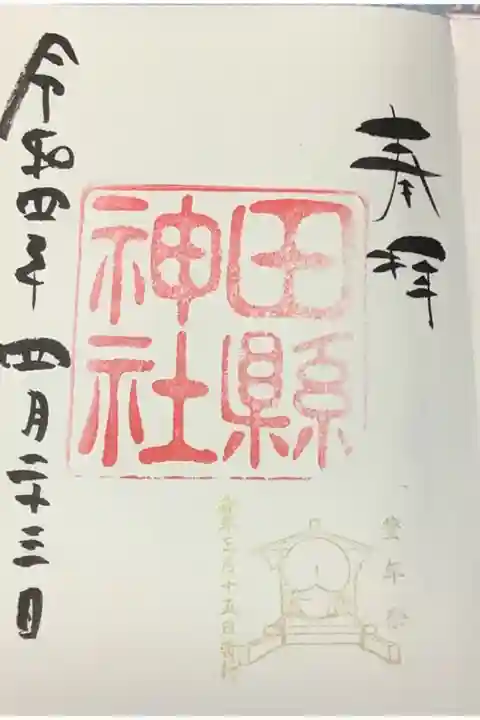 奉拝
田縣
神社
豊年祭
毎年三月十五日斎行
令和四年 四月二十三日